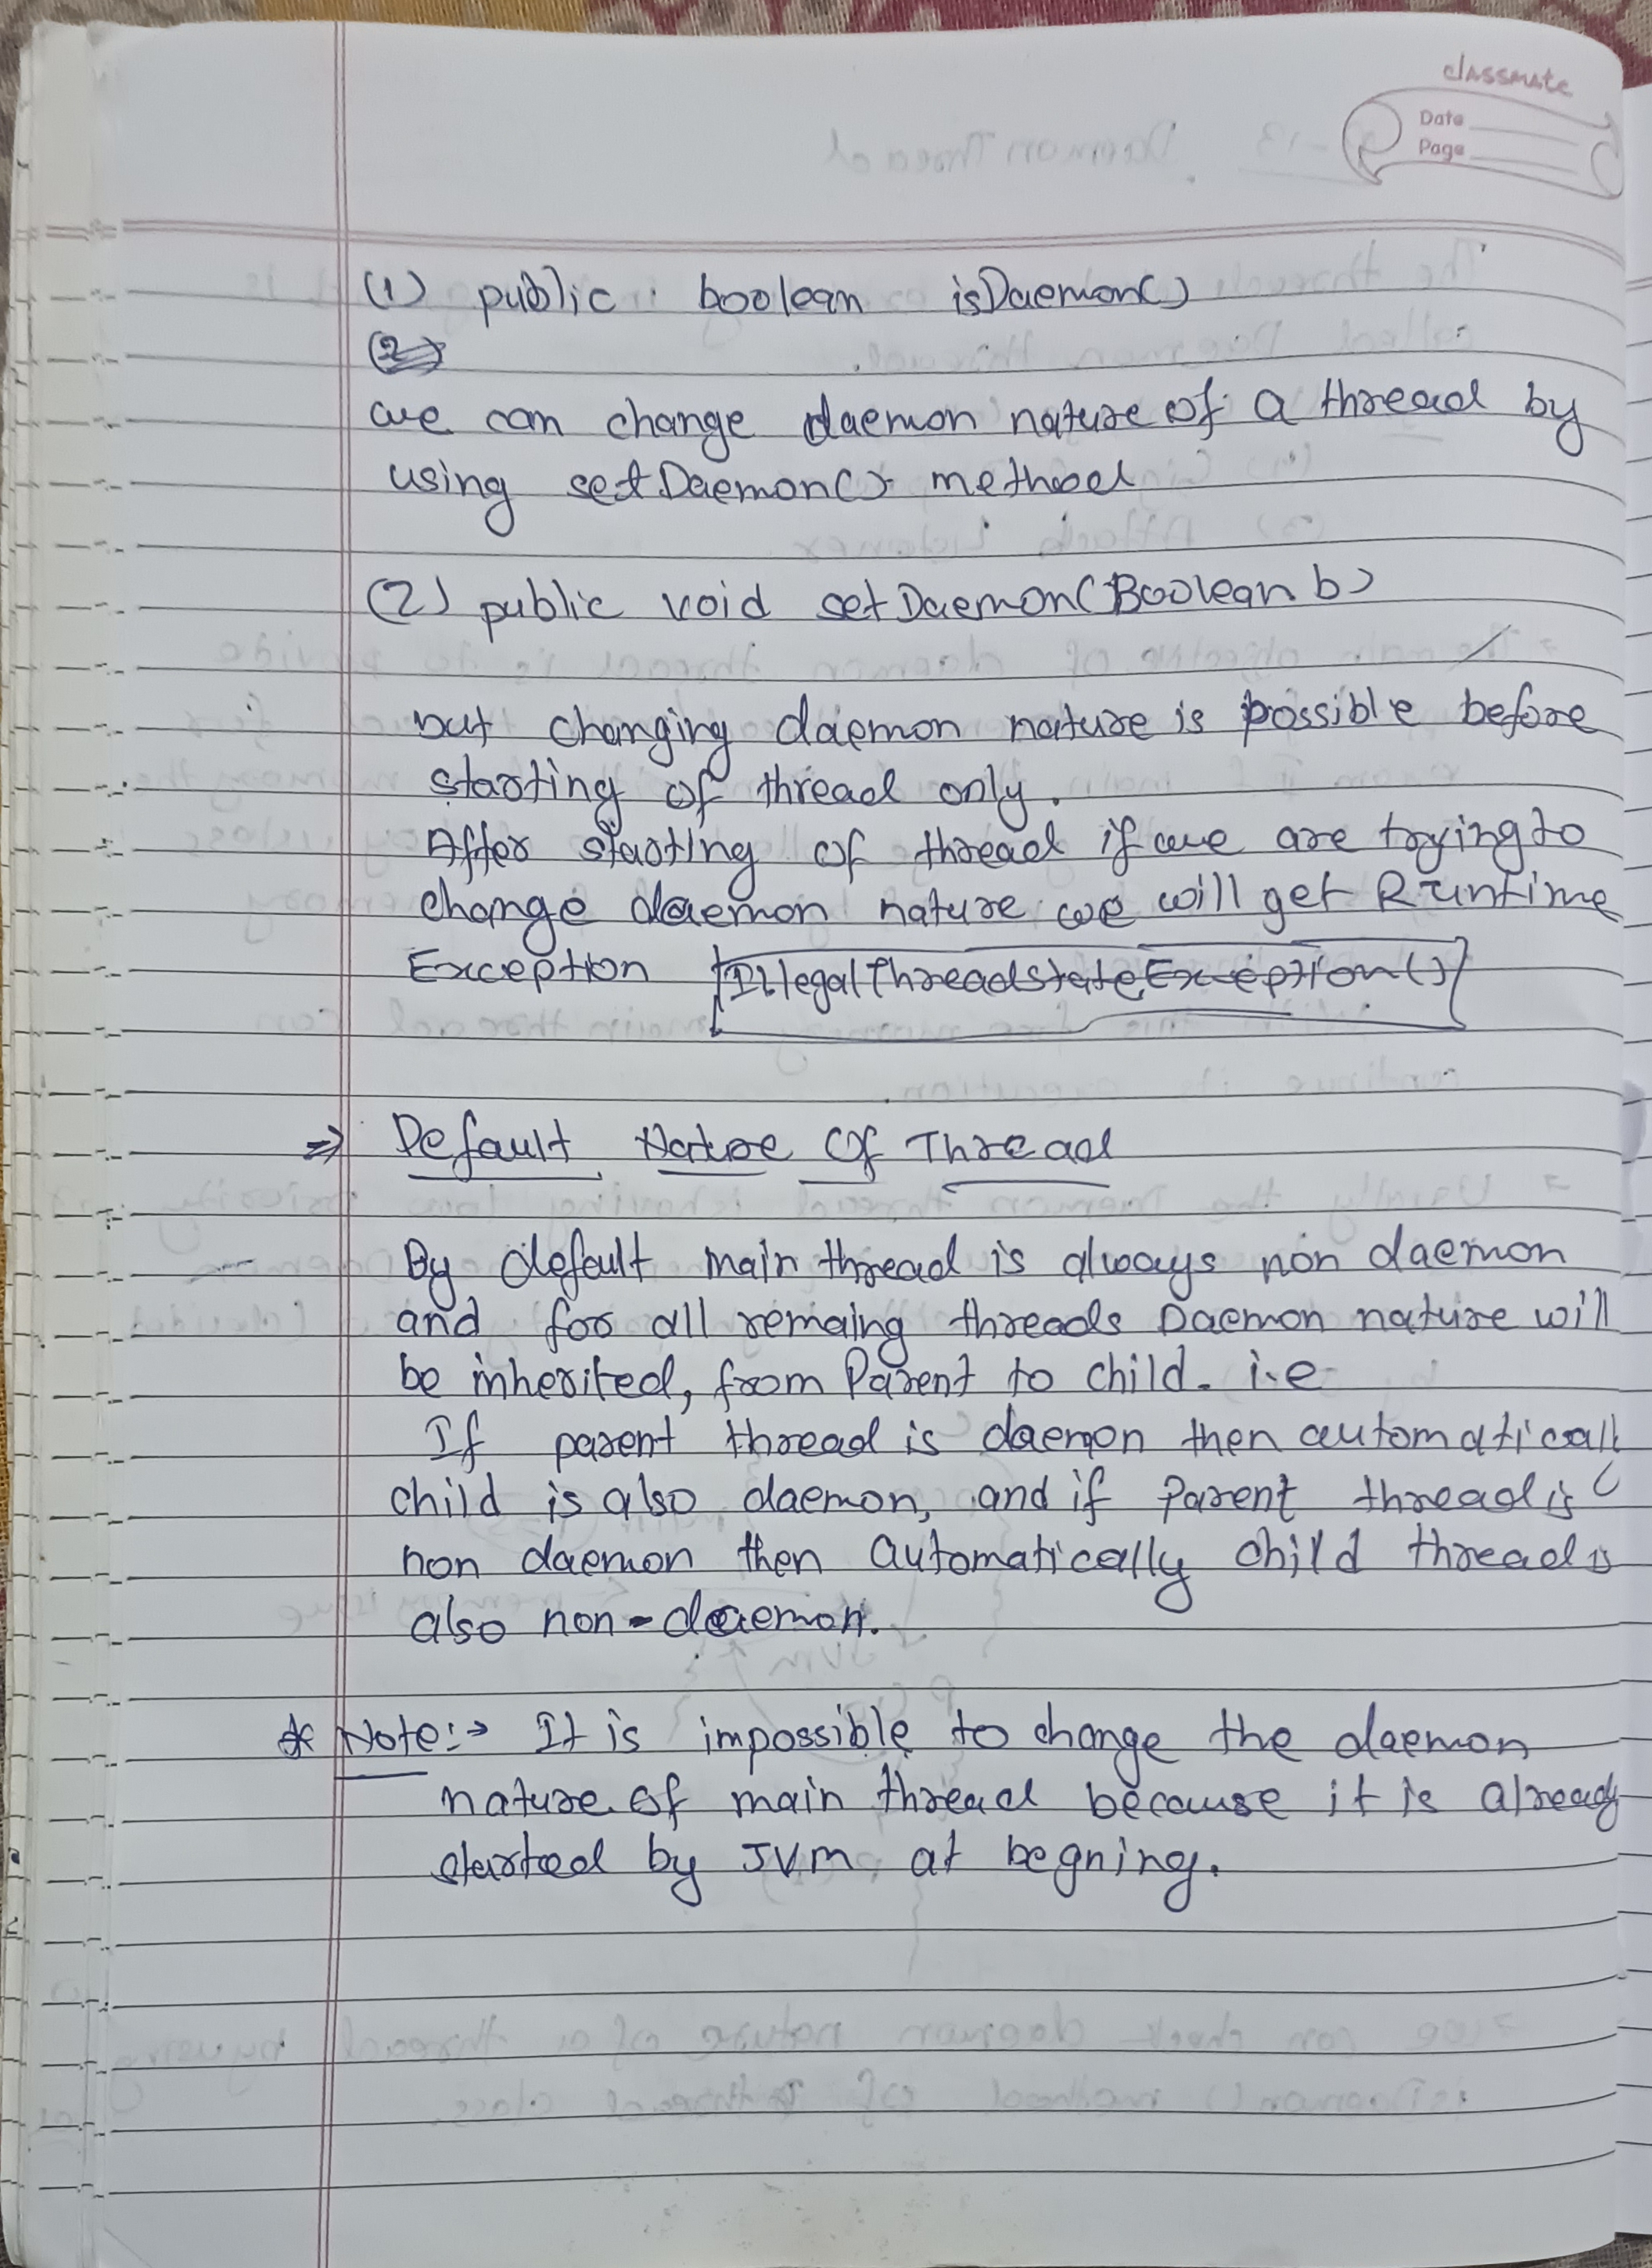 classmate
Date
Page
(1) public boolean isDaemon()
(2)
we can change daemon nature of a thread by
using setDaemon() method
(2) public void setDaemon(Boolean b)
but changing daemon nature is possible before
starting of thread only.
After starting of thread if we are trying to
change daemon nature we will get Runtime
Exception IllegalThreadstateException()
⇒ Default Nature Of Thread
By default main thread is always non daemon
and for all remaing threads Daemon nature will
be inherited, from Parent to child. i.e
If parent thread is daemon then automaticall
child is also daemon, and if Parent thread is
non daemon then Automatically child thread is
also non-daemon.
* Note:→ It is impossible to change the daemon
nature of main thread because it is already
started by JVM at begning.